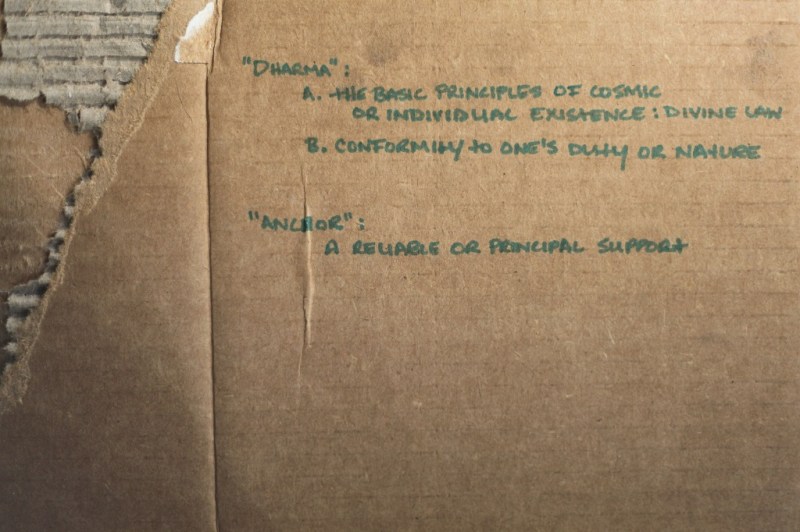 "DHARMA":
A. THE BASIC PRINCIPLES OF COSMIC
OR INDIVIDUAL EXISTENCE: DIVINE LAW
B. CONFORMITY TO ONE'S DUTY OR NATURE
"ANCHOR":
A RELIABLE OR PRINCIPAL SUPPORT